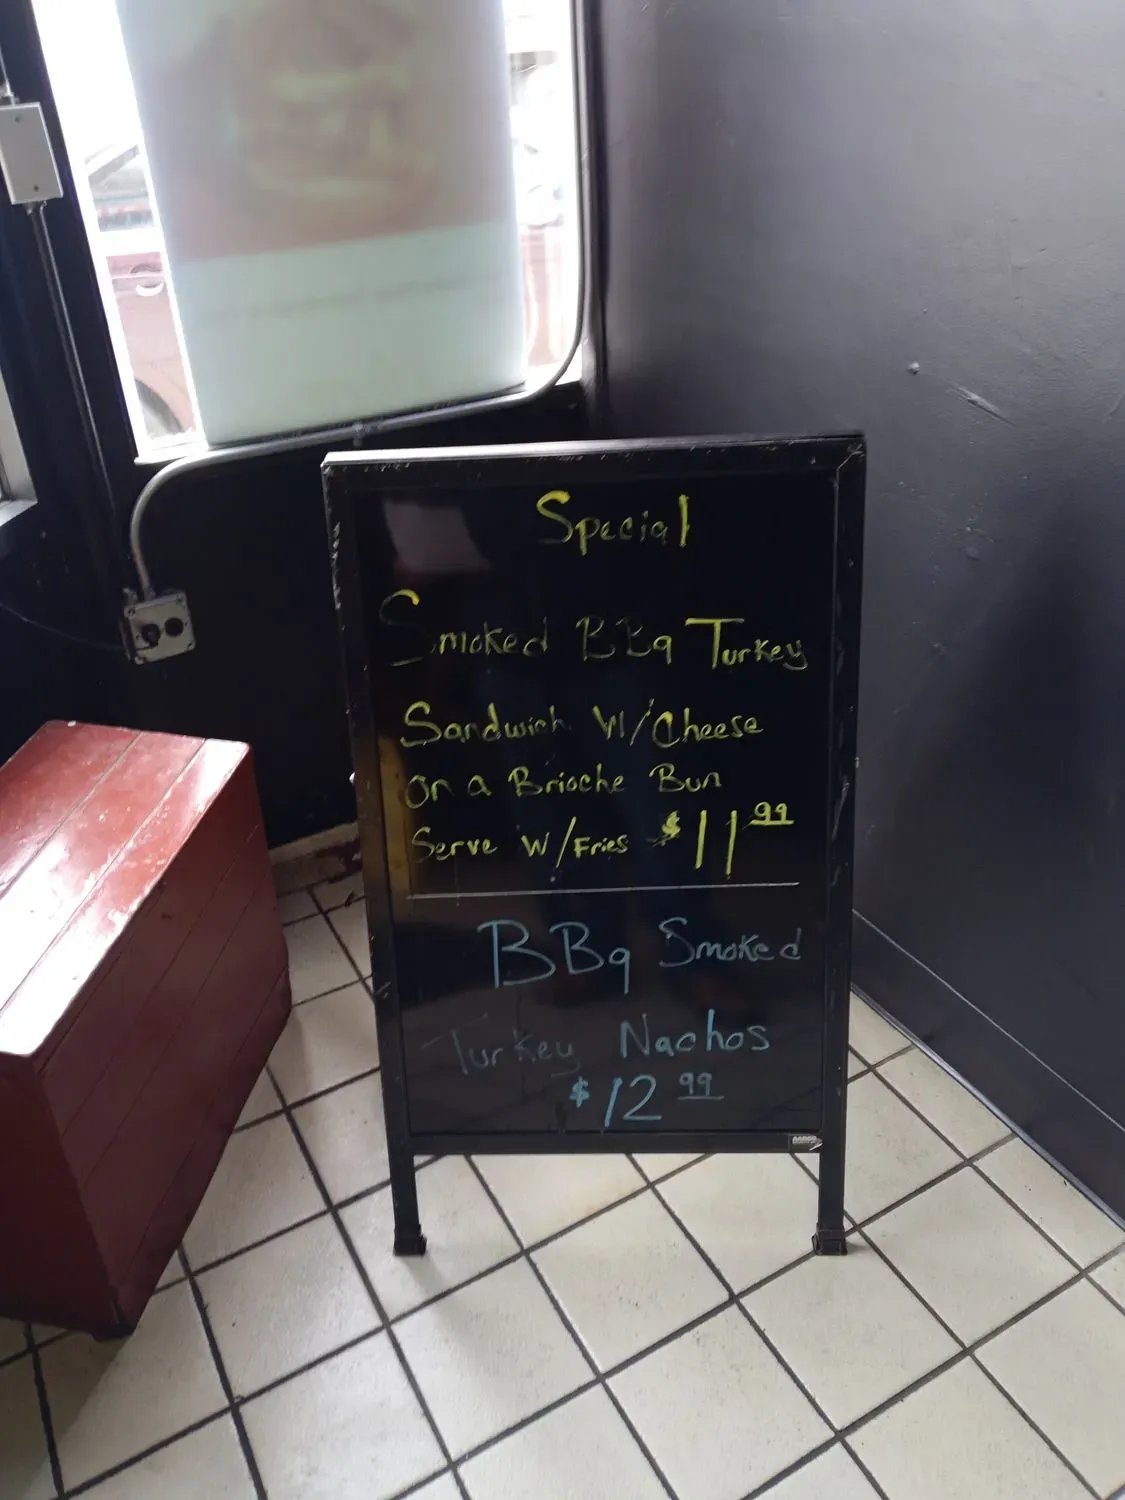 Special
Smoked BBq Turkey
Sandwich W/Cheese
on a Brioche Bun
Serve W/Fries $11.99
BBq Smoked
Turkey Nachos
$12.99